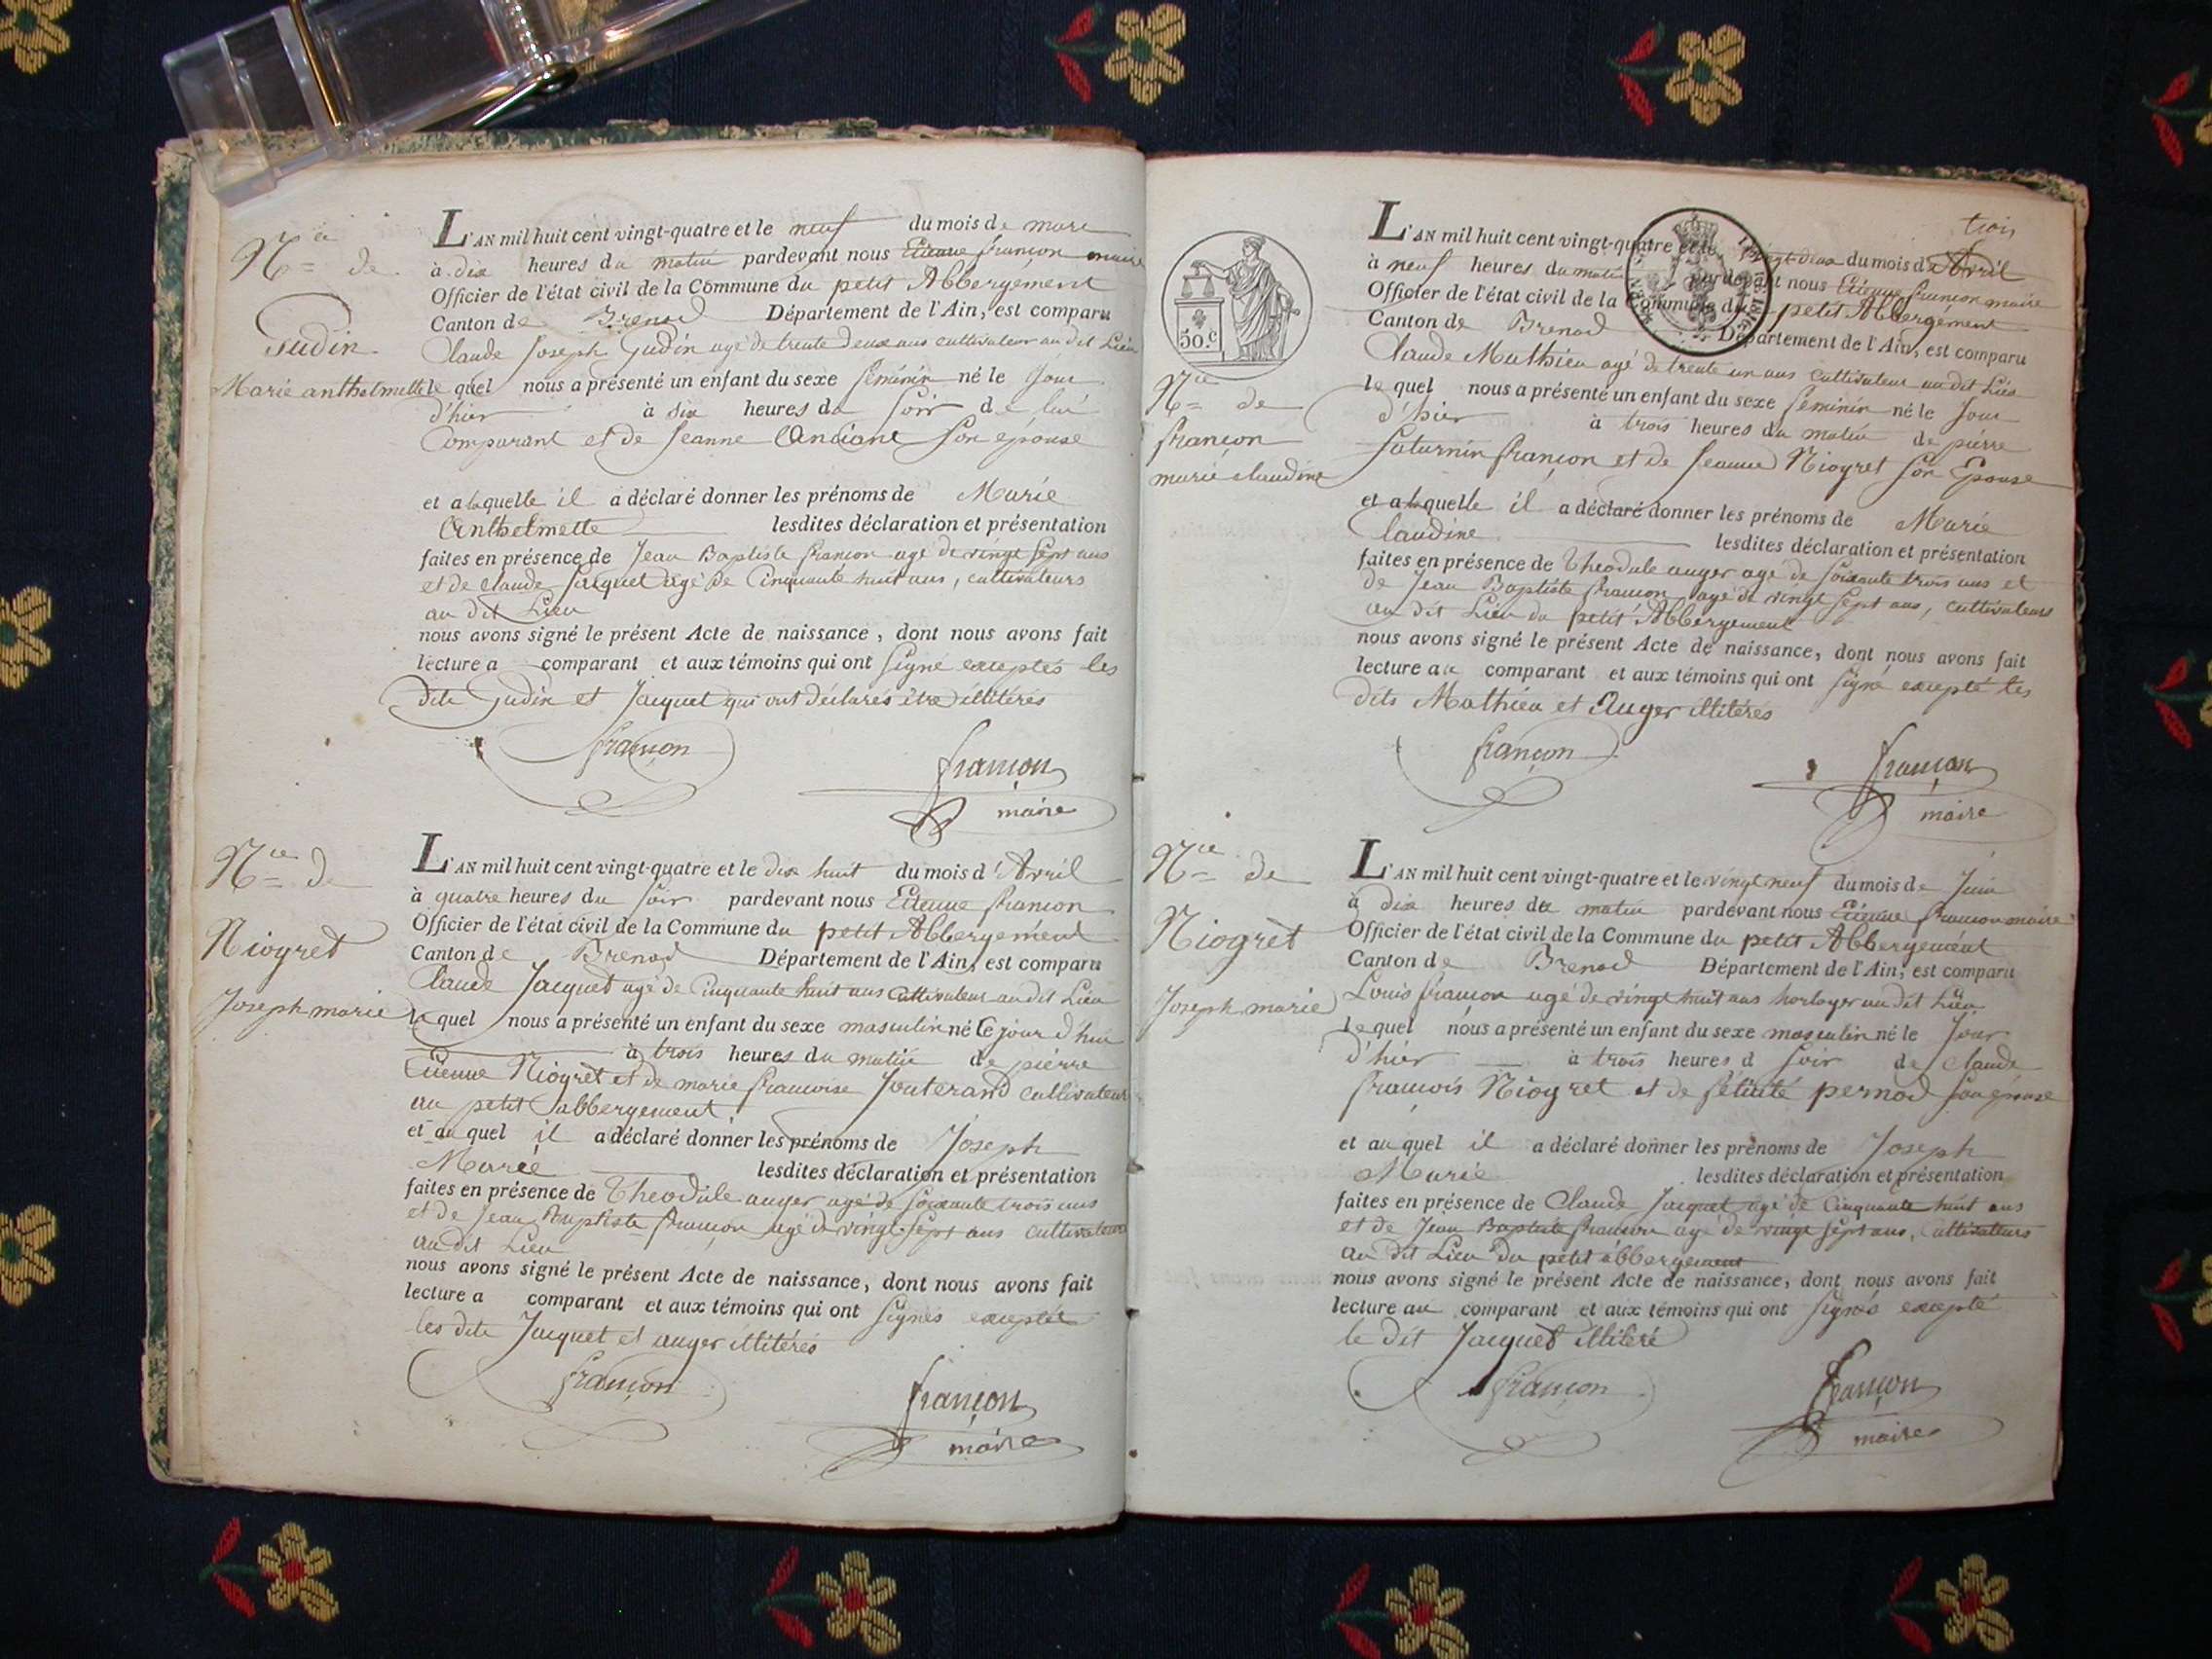 Nce de
Gudin
Marie anthelmette
L'AN mil huit cent vingt-quatre et le neuf du mois de mars
à dix heures du matin pardevant nous Etienne françon maire
Officier de l'état civil de la Commune du petit Abbergement
Canton de Brenod Département de l'Ain, est comparu
Claude Joseph Gudin agé de trente deux ans cultivateur au dit Lieu
le quel nous a présenté un enfant du sexe féminin né le jour
d'hier à six heures du soir de lui
Comparant et de Jeanne Anciant son épouse
et a laquelle il a déclaré donner les prénoms de Marie
Anthelmette lesdites déclaration et présentation
faites en présence de Jean Baptiste françon agé de vingt sept ans
et de claude Jacquet agé de Cinquante huit ans, cultivateurs
au dit Lieu
nous avons signé le présent Acte de naissance, dont nous avons fait
lecture a comparant et aux témoins qui ont signé exceptés les
dits Gudin et Jacquet qui ont déclarés être illitérés
françon françon
maire
Nce de
Niogret
Joseph marie
L'AN mil huit cent vingt-quatre et le dix huit du mois d'Avril
à quatre heures du soir pardevant nous Etienne françon
Officier de l'état civil de la Commune du petit Abbergement
Canton de Brenod Département de l'Ain, est comparu
Claude Jacquet agé de Cinquante huit ans Cultivateur au dit Lieu
le quel nous a présenté un enfant du sexe masculin né le jour d'hui
à trois heures du matin de pierre
Etienne Niogret et de marie françoise Jouterand cultivateur
au petit abbergement
et au quel il a déclaré donner les prénoms de Joseph
Marie lesdites déclaration et présentation
faites en présence de Theodule auger agé de soixante trois ans
et de Jean Baptiste françon agé de vingt sept ans cultivateurs
au dit Lieu
nous avons signé le présent Acte de naissance, dont nous avons fait
lecture a comparant et aux témoins qui ont signés exceptés
les dits Jacquet et auger illitérés
françon françon
maire
trois
50.c
Nce de
françon
marie claudine
L'AN mil huit cent vingt-quatre et le vingt deux du mois d'Avril
à neuf heures du matin pardevant nous Etienne françon maire
Officier de l'état civil de la Commune du petit Abbergement
Canton de Brenod Département de l'Ain, est comparu
Claude Mathieu agé de trente un ans cultivateur au dit Lieu
le quel nous a présenté un enfant du sexe féminin né le jour
d'hier à trois heures du matin de pierre
Saturnin françon et de Jeanne Niogret son Epouse
et a laquelle il a déclaré donner les prénoms de Marie
Claudine lesdites déclaration et présentation
faites en présence de Theodule auger agé de soixante trois ans et
de Jean Baptiste françon agé de vingt sept ans, cultivateurs
au dit Lieu du petit Abbergement
nous avons signé le présent Acte de naissance, dont nous avons fait
lecture au comparant et aux témoins qui ont signé excepté les
dits Mathieu et Auger illitérés
françon françon
maire
Nce de
Niogret
Joseph marie
L'AN mil huit cent vingt-quatre et le vingt neuf du mois de Juin
à dix heures du matin pardevant nous Etienne françon maire
Officier de l'état civil de la Commune du petit Abbergement
Canton de Brenod Département de l'Ain, est comparu
Louis françon agé de vingt huit ans horloger au dit Lieu
le quel nous a présenté un enfant du sexe masculin né le Jour
d'hier à trois heures d soir de Claude
françois Niogret et de félicité pernod son épouse
et au quel il a déclaré donner les prénoms de Joseph
Marie lesdites déclaration et présentation
faites en présence de Claude Jacquet agé de Cinquante huit ans
et de Jean Baptiste françon agé de vingt sept ans, Cultivateurs
au dit Lieu du petit abbergement
nous avons signé le présent Acte de naissance, dont nous avons fait
lecture au comparant et aux témoins qui ont signés excepté
le dit Jacquet illitéré
françon françon
maire